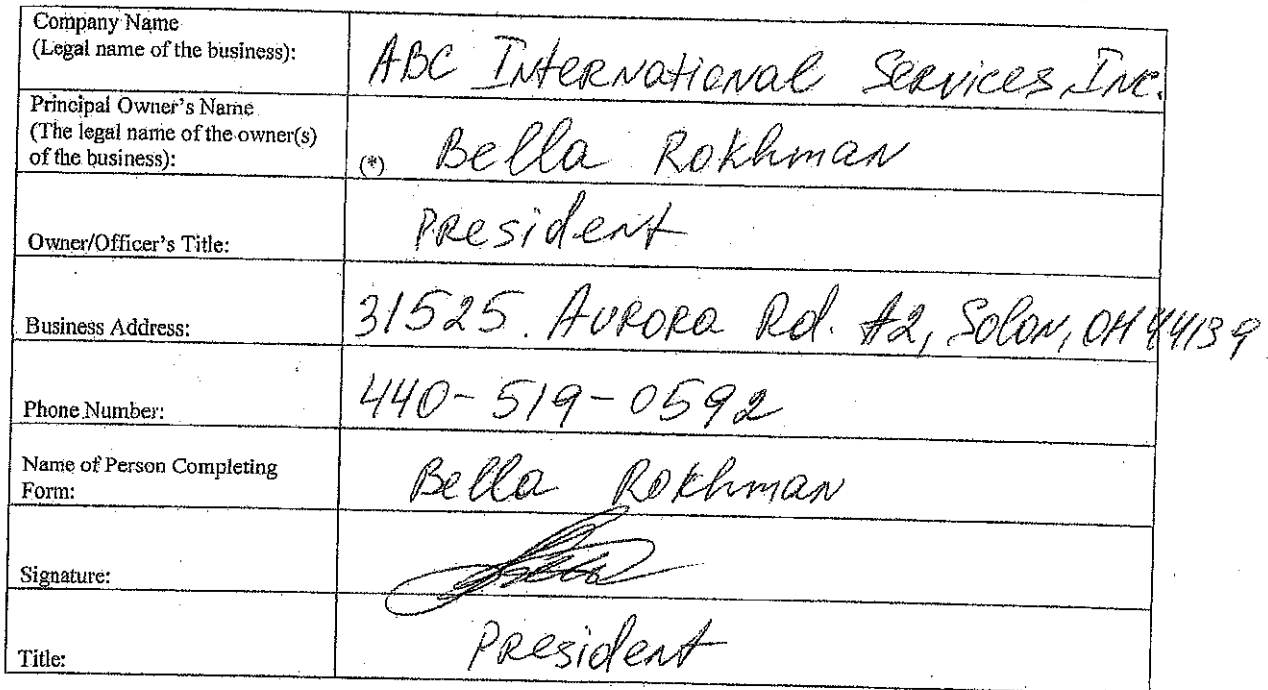 Company Name
(Legal name of the business):
ABC International Services, Inc.
Principal Owner's Name
(The legal name of the owner(s)
of the business):
(*) Bella Rokhman
Owner/Officer's Title:
President
Business Address:
31525. Aurora Rd. #2, Solon, OH 44139
Phone Number:
440-519-0592
Name of Person Completing
Form:
Bella Rokhman
Signature:
Title:
President